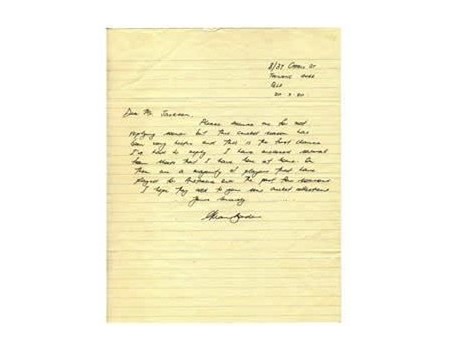 Qld
Dear Mr. Jackson,
Please excuse me for not
replying sooner but this cricket season has
been very hectic and this is the first chance
I've had to reply. I have enclosed several
team sheets that I have been at home. On
them are a majority of players that have
played for Australia over the past few seasons
I hope they add to your sons cricket collection
Yours Sincerely
Allan Border